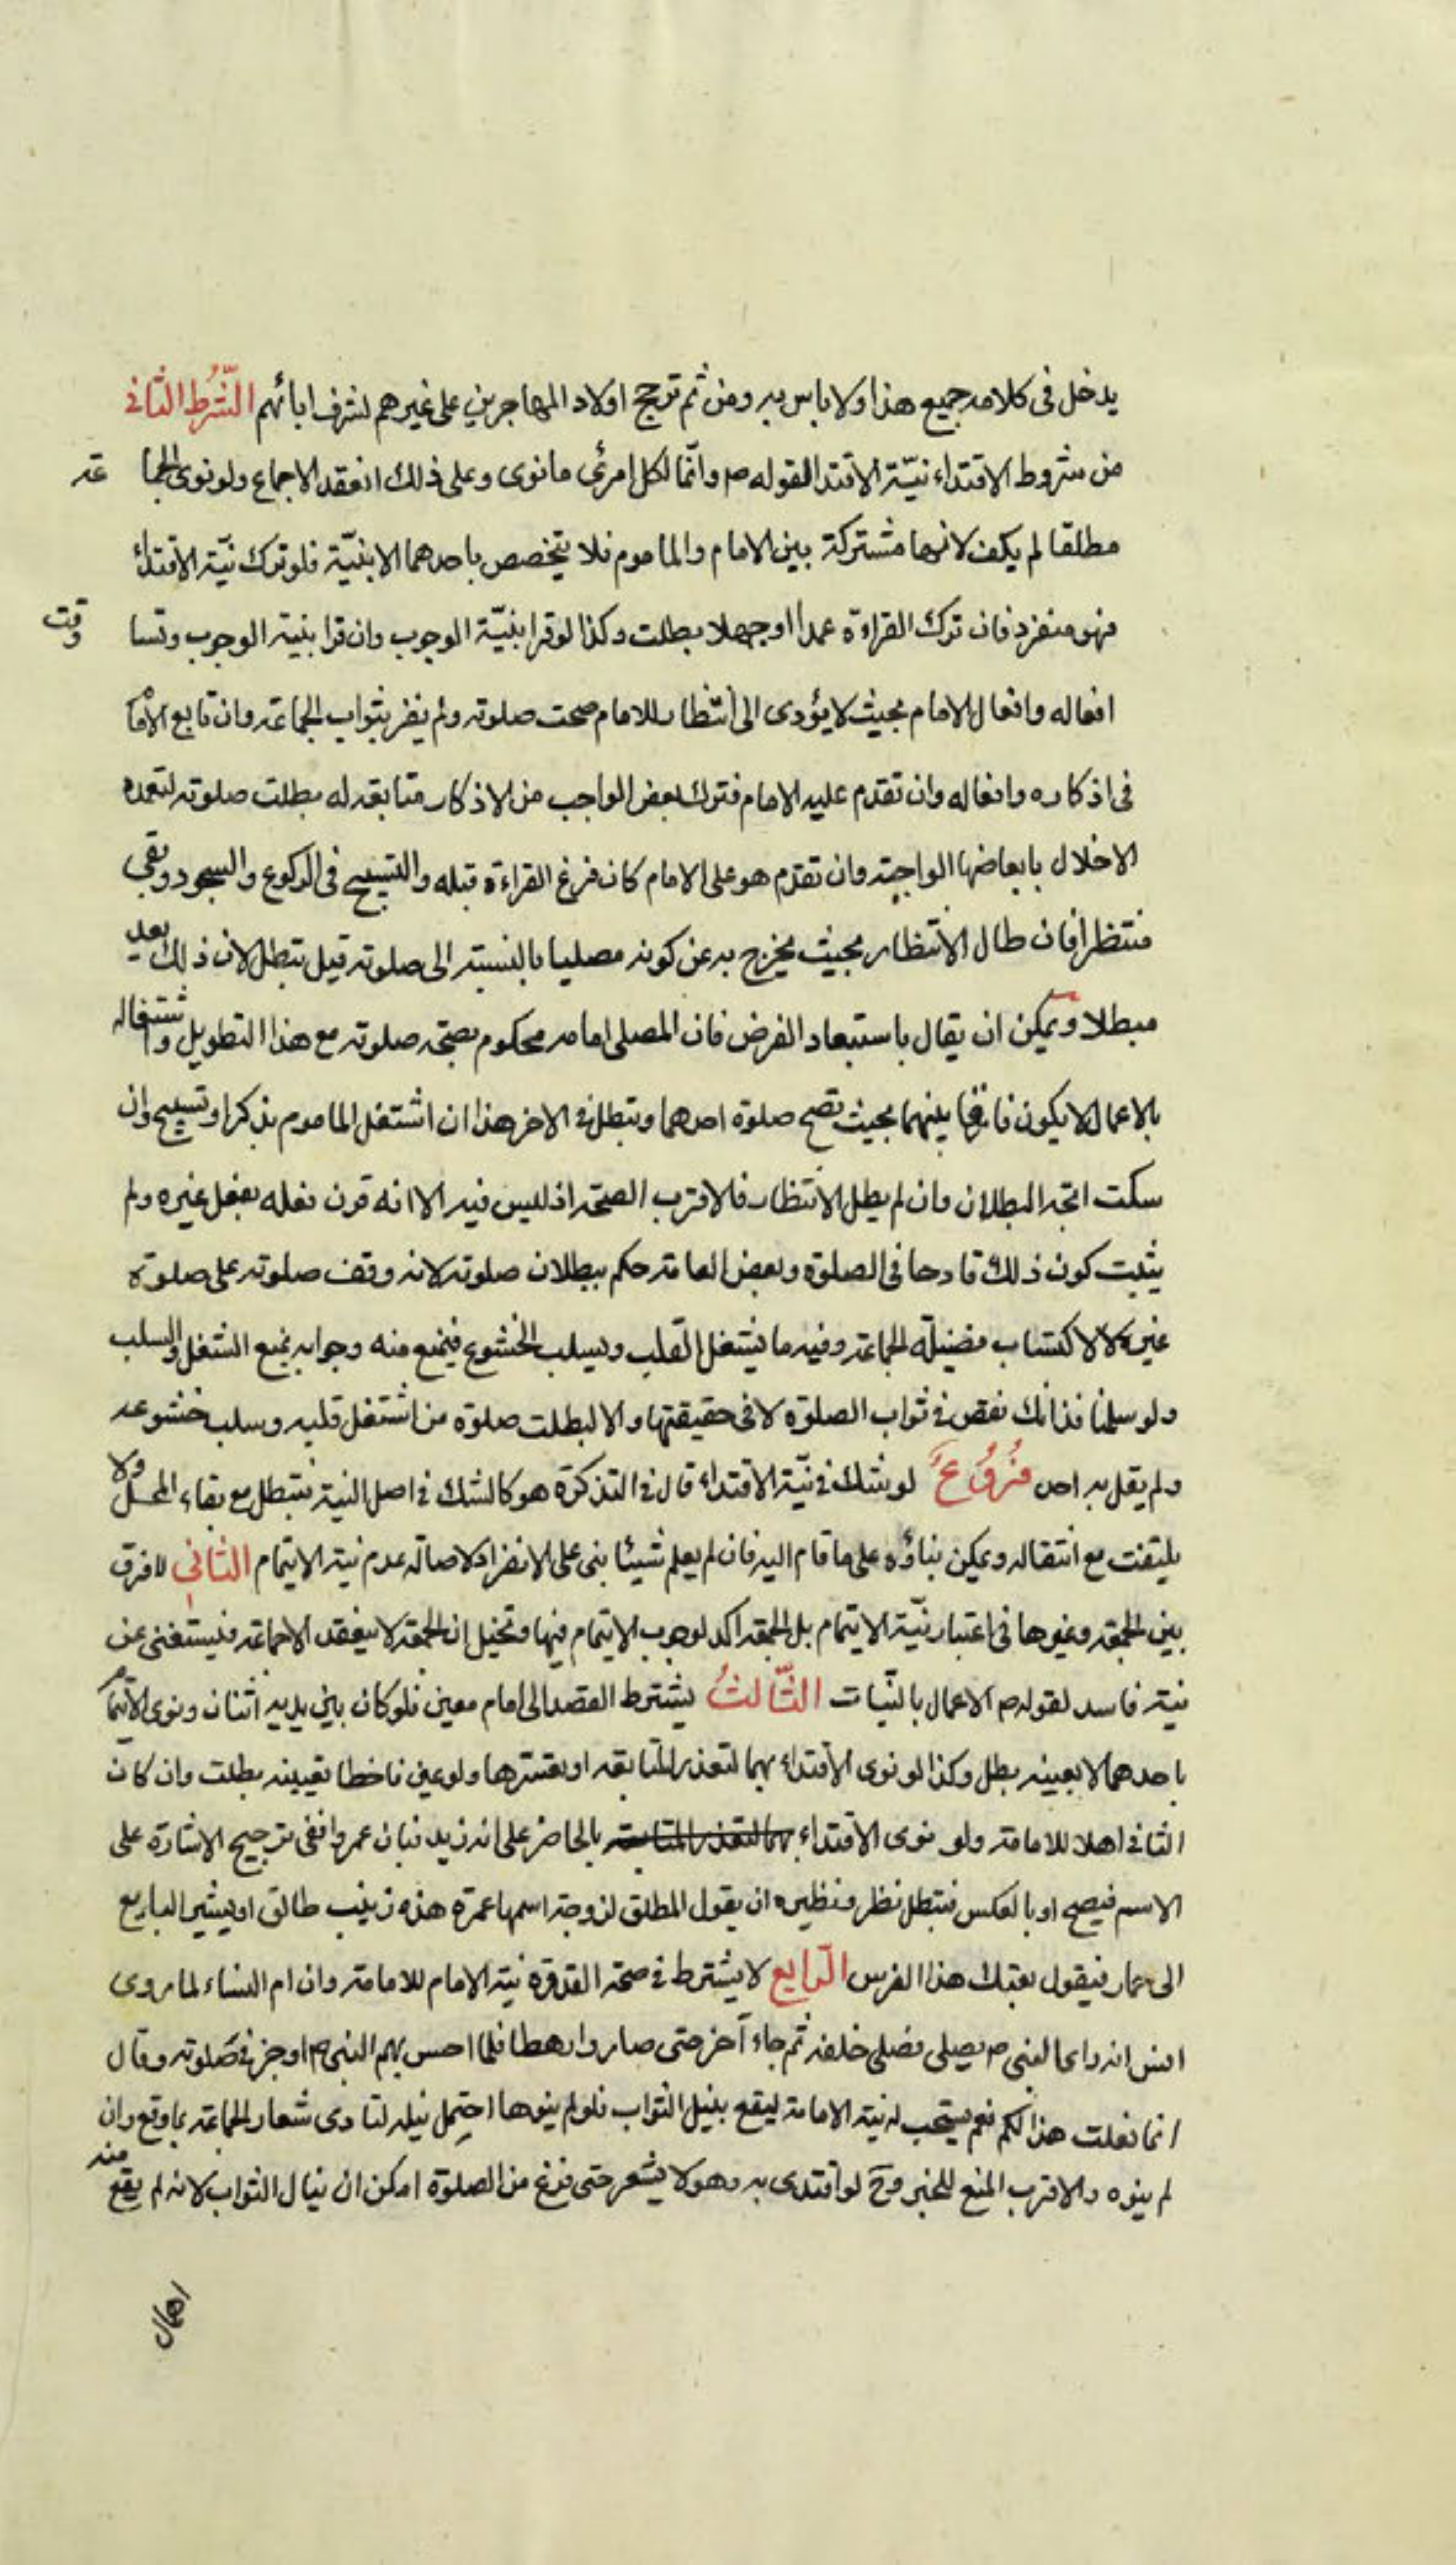 يدخل فى كلامه جميع هذا ولا باس به ومن ثم ترجح اولاد المهاجرين على غيرهم لشرف ابائهم الشرط الثانى
من شروط الاقتداء نيّة الاقتدا لقوله ص وانّما لكل امرئ ما نوى وعلى ذلك انعقد الاجماع ولو نوى الجما عة
مطلقا لم يكف لانها مشتركة بين الامام والماموم فلا يتخصص باحدهما الا بنيّة فلو ترك نيّة الاقتداء
فهو منفرد فان ترك القراءة عمدا او جهلا بطلت وكذا لو قرا بنيّة الوجوب وان قرا بنية الوجوب وتسا وقت
افعاله وافعال الامام بحيث لا يؤدى الى انتظار للامام صحت صلوته ولم يفز بثواب الجماعة وان تابع الاما
فى اذكاره وافعاله وان تقدم عليه الامام فترك بعض الواجب من الاذكار متابعة له بطلت صلوته لتعمده
الاخلال بابعاضها الواجبة وان تقدم هو على الامام كان فرغ القراءة قبله والتسبيح فى الركوع والسجود وبقى
منتظرا فان طال الانتظار بحيث يخرج به عن كونه مصليا بالنسبة الى صلوته قيل تبطل لان ذلك يعد
مبطلا ويمكن ان يقال باستبعاد الفرض فان المصلى امامه محكوم بصحة صلوته مع هذا التطويل واشتغاله
بالاعمال لا يكون فا بينهما بحيث تصح صلوة احدهما وتبطل فى الاخر هذا ان اشتغل الماموم بذكر او تسبيح وان
سكت اتجه البطلان وان لم يطل الانتظار فالاقرب الصحة اذ ليس فيه الا انه قرن فعله بفعل غيره ولم
يثبت كون ذلك قادحا فى الصلوة وبعض العامة حكم ببطلان صلوته لانه وقف صلوته على صلوة
غيره لا لاكتساب فضيلة الجماعة وفيه ما يشغل القلب ويسلب الخشوع فيمنع منه وجوابه بمنع الشغل والسلب
ولو سلمنا فذلك نقص فى ثواب الصلوة لا فى حقيقتها والا لبطلت صلوة من اشتغل قلبه وسلب خشوعه
ولم يقل به احد فُرُوعٌ لو شك فى نيّة الاقتداء قال فى التذكرة هو كالشك فى اصل النية فتبطل مع بقاء المحل ولا
يلتفت مع انتقاله ويمكن بناؤه على ما قام اليه فان لم يعلم شيئا بنى على الانفراد لاصالة عدم نية الايتمام الثانى لا فرق
بين الجمعة وغيرها فى اعتبار نيّة الايتمام بل الجمعة اكد لوجوب الايتمام فيها وتخيل ان الجمعة لا ينعقد الا جماعة فيستغنى عن
نيته فاسد لقوله ص الاعمال بالنّيات الثّالثُ يشترط القصد الى امام معين فلو كان بين يديه اثنان ونوى الايتما
باحدهما لا بعينه بطل وكذا لو نوى الاقتداء بهما لتعذر المتابعة او تعسرها ولو عين فاخطا تعيينه بطلت وان كان
الثانى اهلا للامامة ولو نوى الاقتداء بهما لتعذر المتابعة بالحاضر على انه زيد فبان عمروا ففى ترجيح الاشارة على
الاسم فيصح او بالعكس فتبطل نظر ونظيره ان يقول المطلق لزوجة اسمها عمرة هذه زينب طالق او يشير البايع
الى حمار فيقول بعتك هذا الفرس الرّابع لا يشترط فى صحة القدوة نية الامام للامامة وان ام النساء لما روى
انس انه راى النبى ص يصلى فصلى خلفه ثم جاء آخر حتى صاروا رهطا فلما احس بهم النبى ص اوجز فى صلوته وقال
انما فعلت هذا لكم نعم يستحب له نية الامامة ليقع بنيل الثواب فلو لم ينوها احتمل نيله لتادى شعار الجماعة بما وقع وان
لم ينوه والاقرب المنع للخبر وح لو اقتدى به وهو لا يشعر حتى فرغ من الصلوة امكن ان ينال الثواب لانه لم يقع منه
اهمال